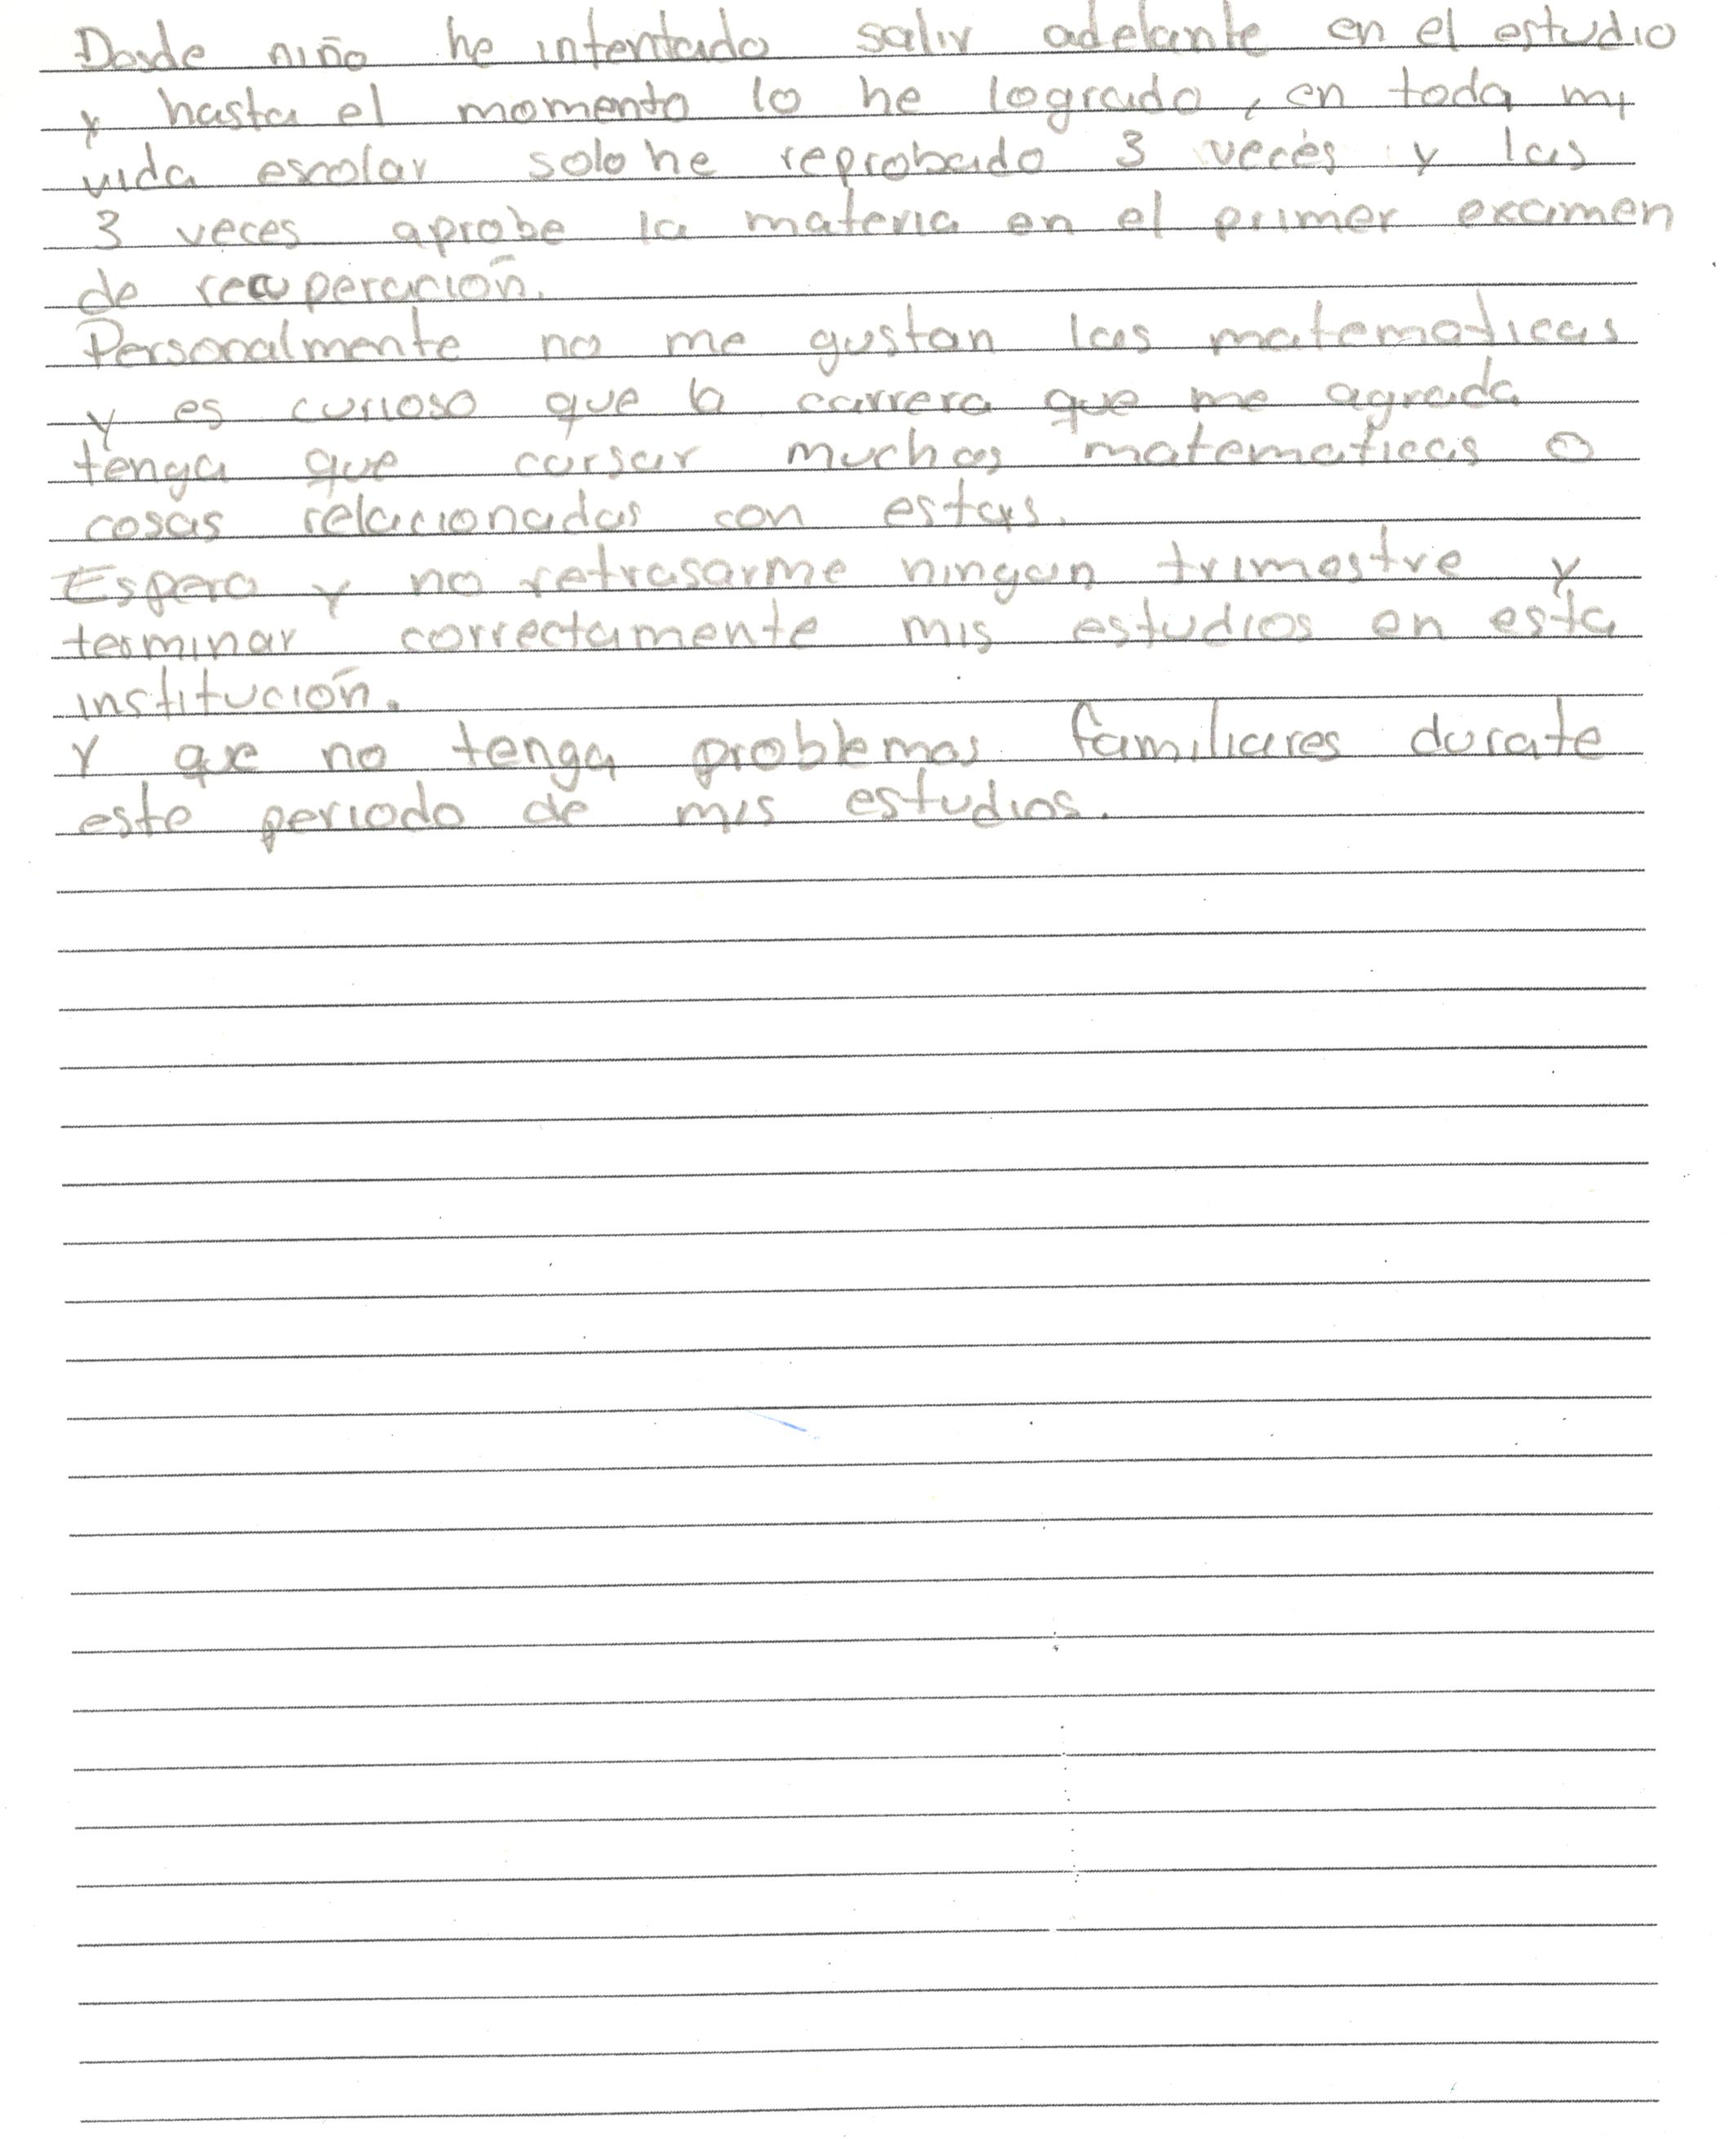 Desde niño he intentado salir adelante en el estudio
y hasta el momento lo he logrado, en toda mi
vida escolar solo he reprobado 3 veces y las
3 veces aprobe la materia en el primer examen
de recuperación.
Personalmente no me gustan las matematicas
y es curioso que la carrera que me agrada
tenga que cursar muchas matematicas o
cosas relacionadas con estas.
Espero y no retrasarme ningun trimestre y
terminar correctamente mis estudios en esta
institución.
Y que no tenga problemas familiares durate
este periodo de mis estudios.